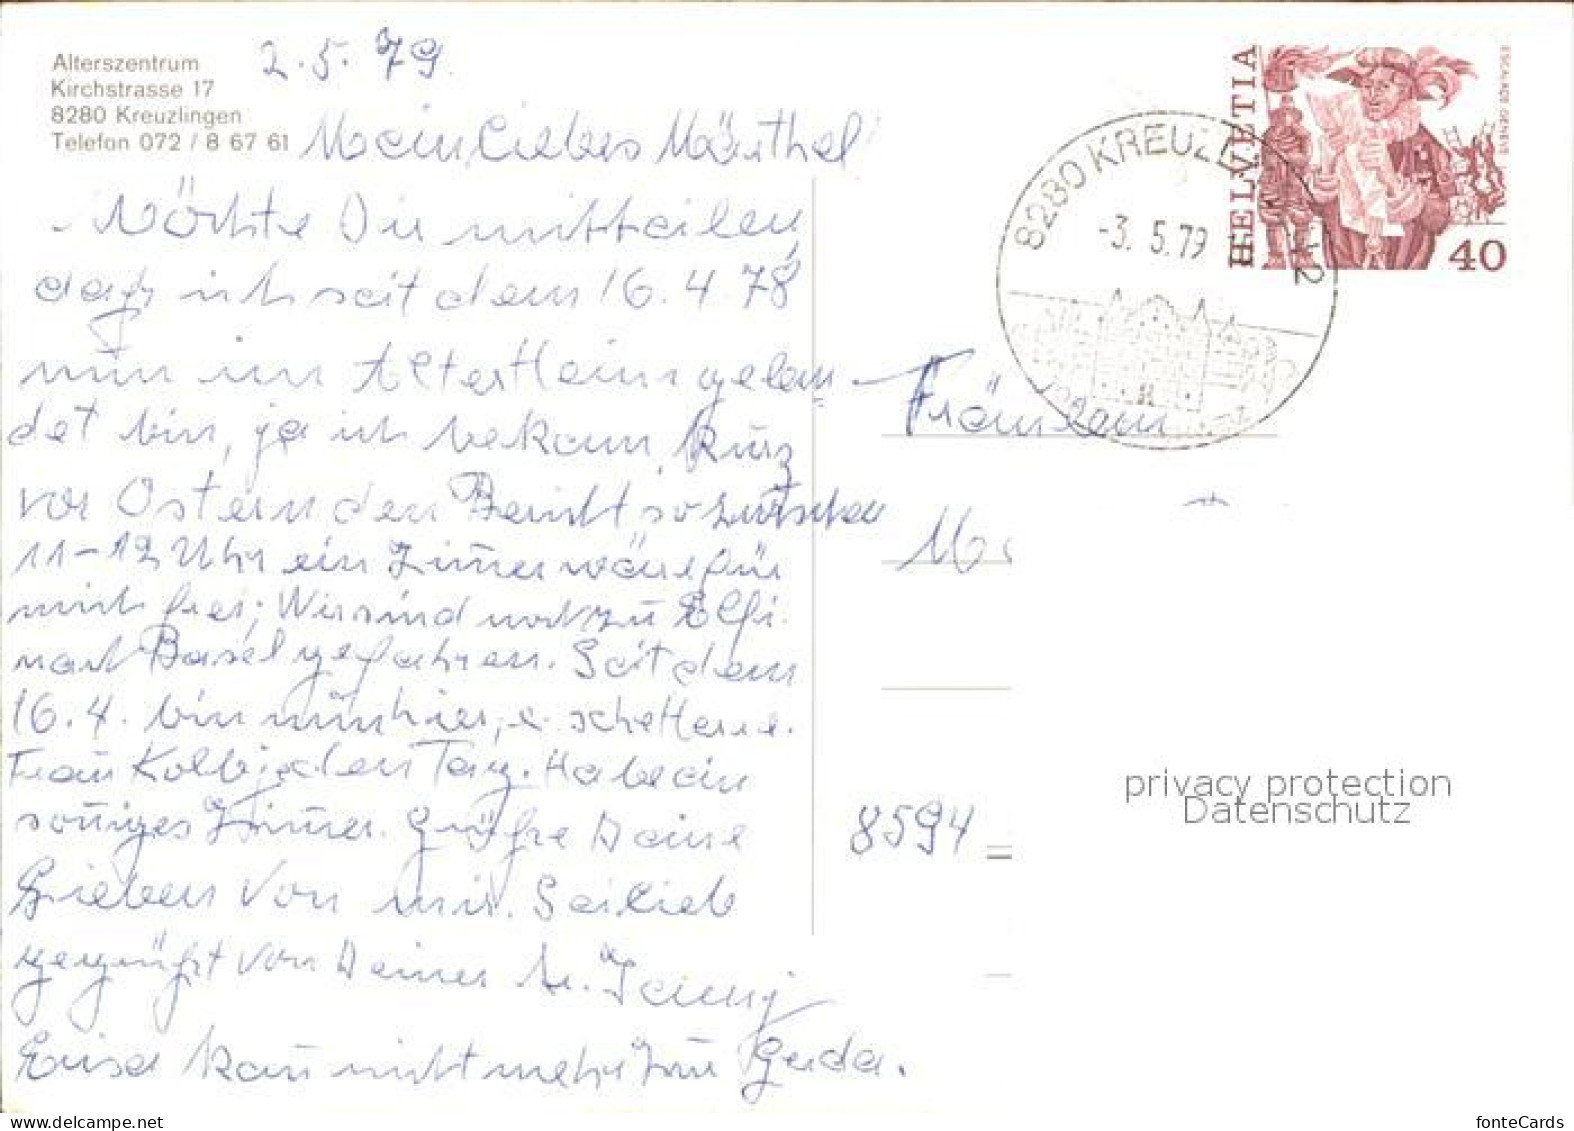 Alterszentrum
Kirchstrasse 17
8280 Kreuzlingen
Telefon 072 / 8 67 61
2.5.79.
Mein Liebes Märthel
Möchte Dir mitteilen,
daß ich seit dem 16.4.78
nun im Altersheim gelan-
det bin, ja ich bekam, kurz
vor Ostern den Bericht so zwischen
11-12 Uhr ein Zim̄er wäre für
mich frei; Wir sind noch zu Elfi
nach Basel gefahren. Seit dem
16.4. bin nun hier,
Frau Tag. Habe ein
son̄iges Zim̄er. Grüße Deine
Lieben von mir. Sei lieb
gegrüßt von Deiner
kan̄ nicht mehr zu Gerda.
HELVETIA
ESCALADE GENEVE
40
8280 KREUZLINGEN 2
-3. 5.79
Fräulein
8594
privacy protection
Datenschutz
fonteCards